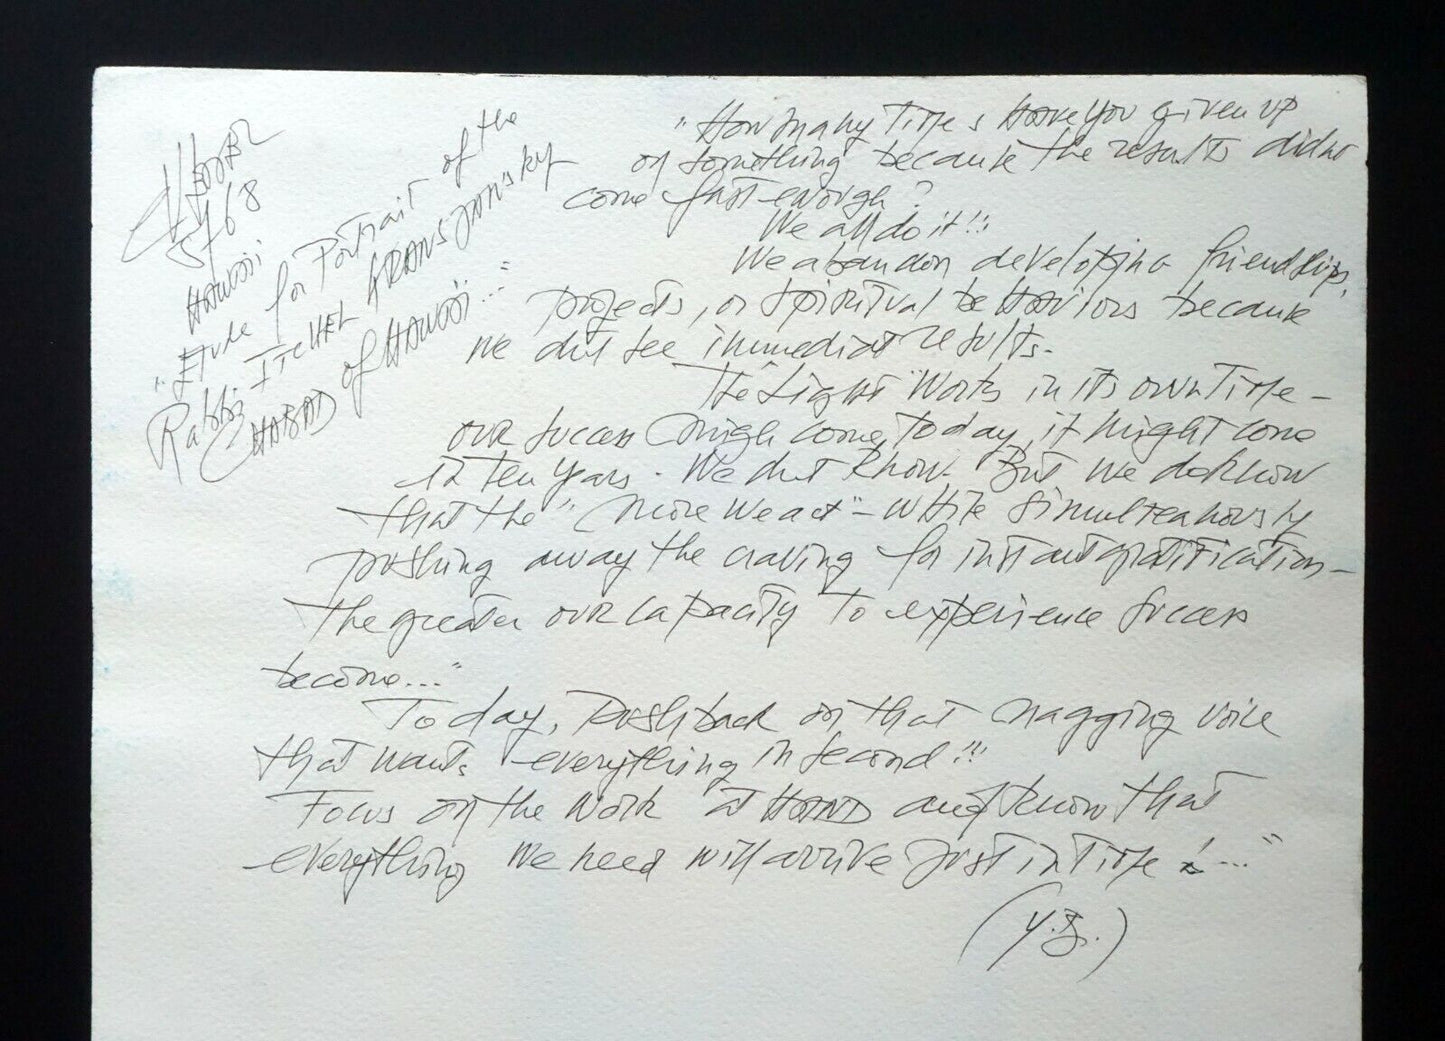 5768
HAWAII
"Etude for Portrait of the
Rabbi ITCHEL KRANSJANSKY
CHABAD of HAWAII..."
"How many Times Have you given up
on something because the results didnt
come fast enough?
We all do it!!
We abandon developing friendships,
projects, or spiritual beHaviors because
we dnt see immediat results.
The "Light" Works in its own Time –
our success migh come today, it might come
in Ten Years. We dnt Know. But we do know
that the "more we act" – While simultenaously
pushing away the craving for instant gratification –
the greater our capacity to experience success
become..."
Today, Push back on that nagging voice
that wants everything in second!!!
Focus on the Work at HAND and know that
everything we need will arrive just in Time!..."
(Y.B.)